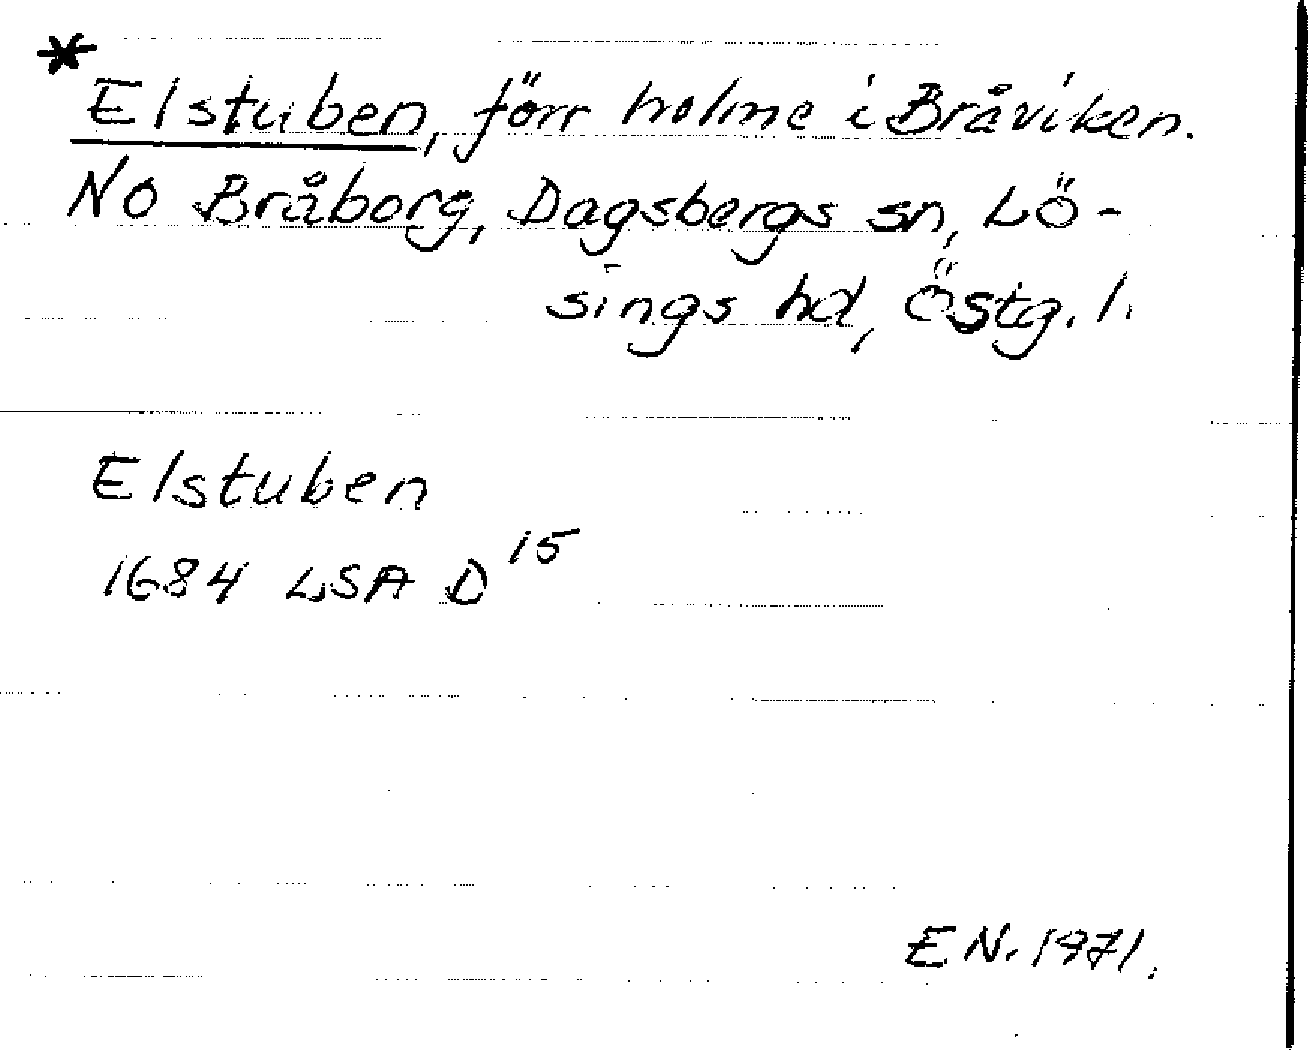 *
Elstuben, förr holme i Bråviken.
NO Bråborg, Dagsbergs sn, Lö-
sings hd, Östg. l.
Elstuben
1684 LSA D 15
EN. 1971.